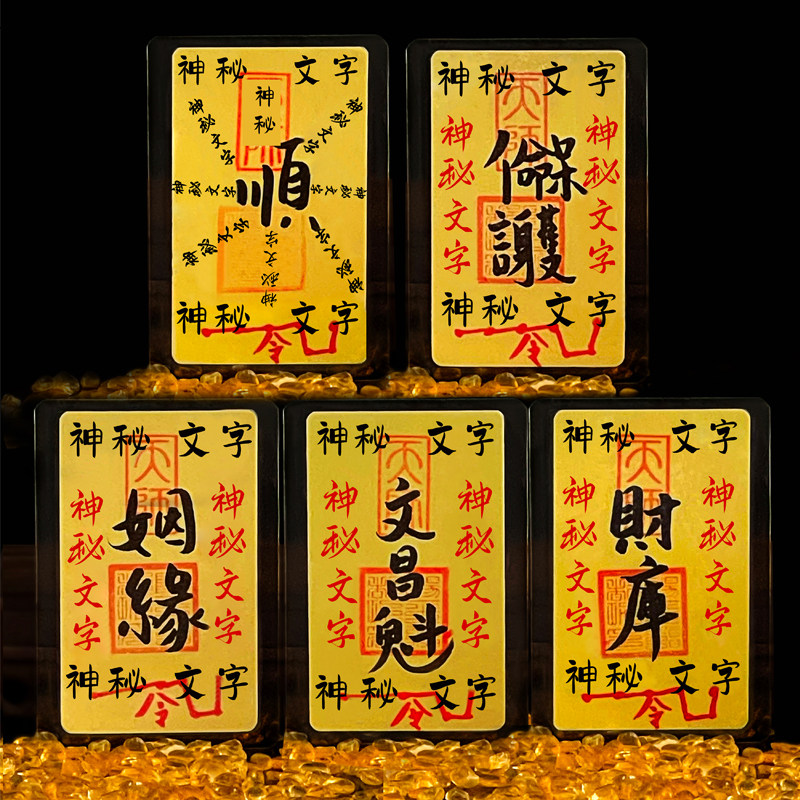 神秘 文字
神秘
神秘文字
神秘文字
神秘文字
順
神秘文字
神秘文字
神秘文字
神秘文字
神秘 文字
令
神秘 文字
天師
神秘文字
保護
神秘文字
神秘 文字
令
神秘 文字
天師
神秘文字
姻緣
神秘文字
神秘 文字
令
神秘 文字
天師
神秘文字
文昌魁
神秘文字
神秘 文字
令
神秘 文字
天師
神秘文字
財庫
神秘文字
神秘 文字
令